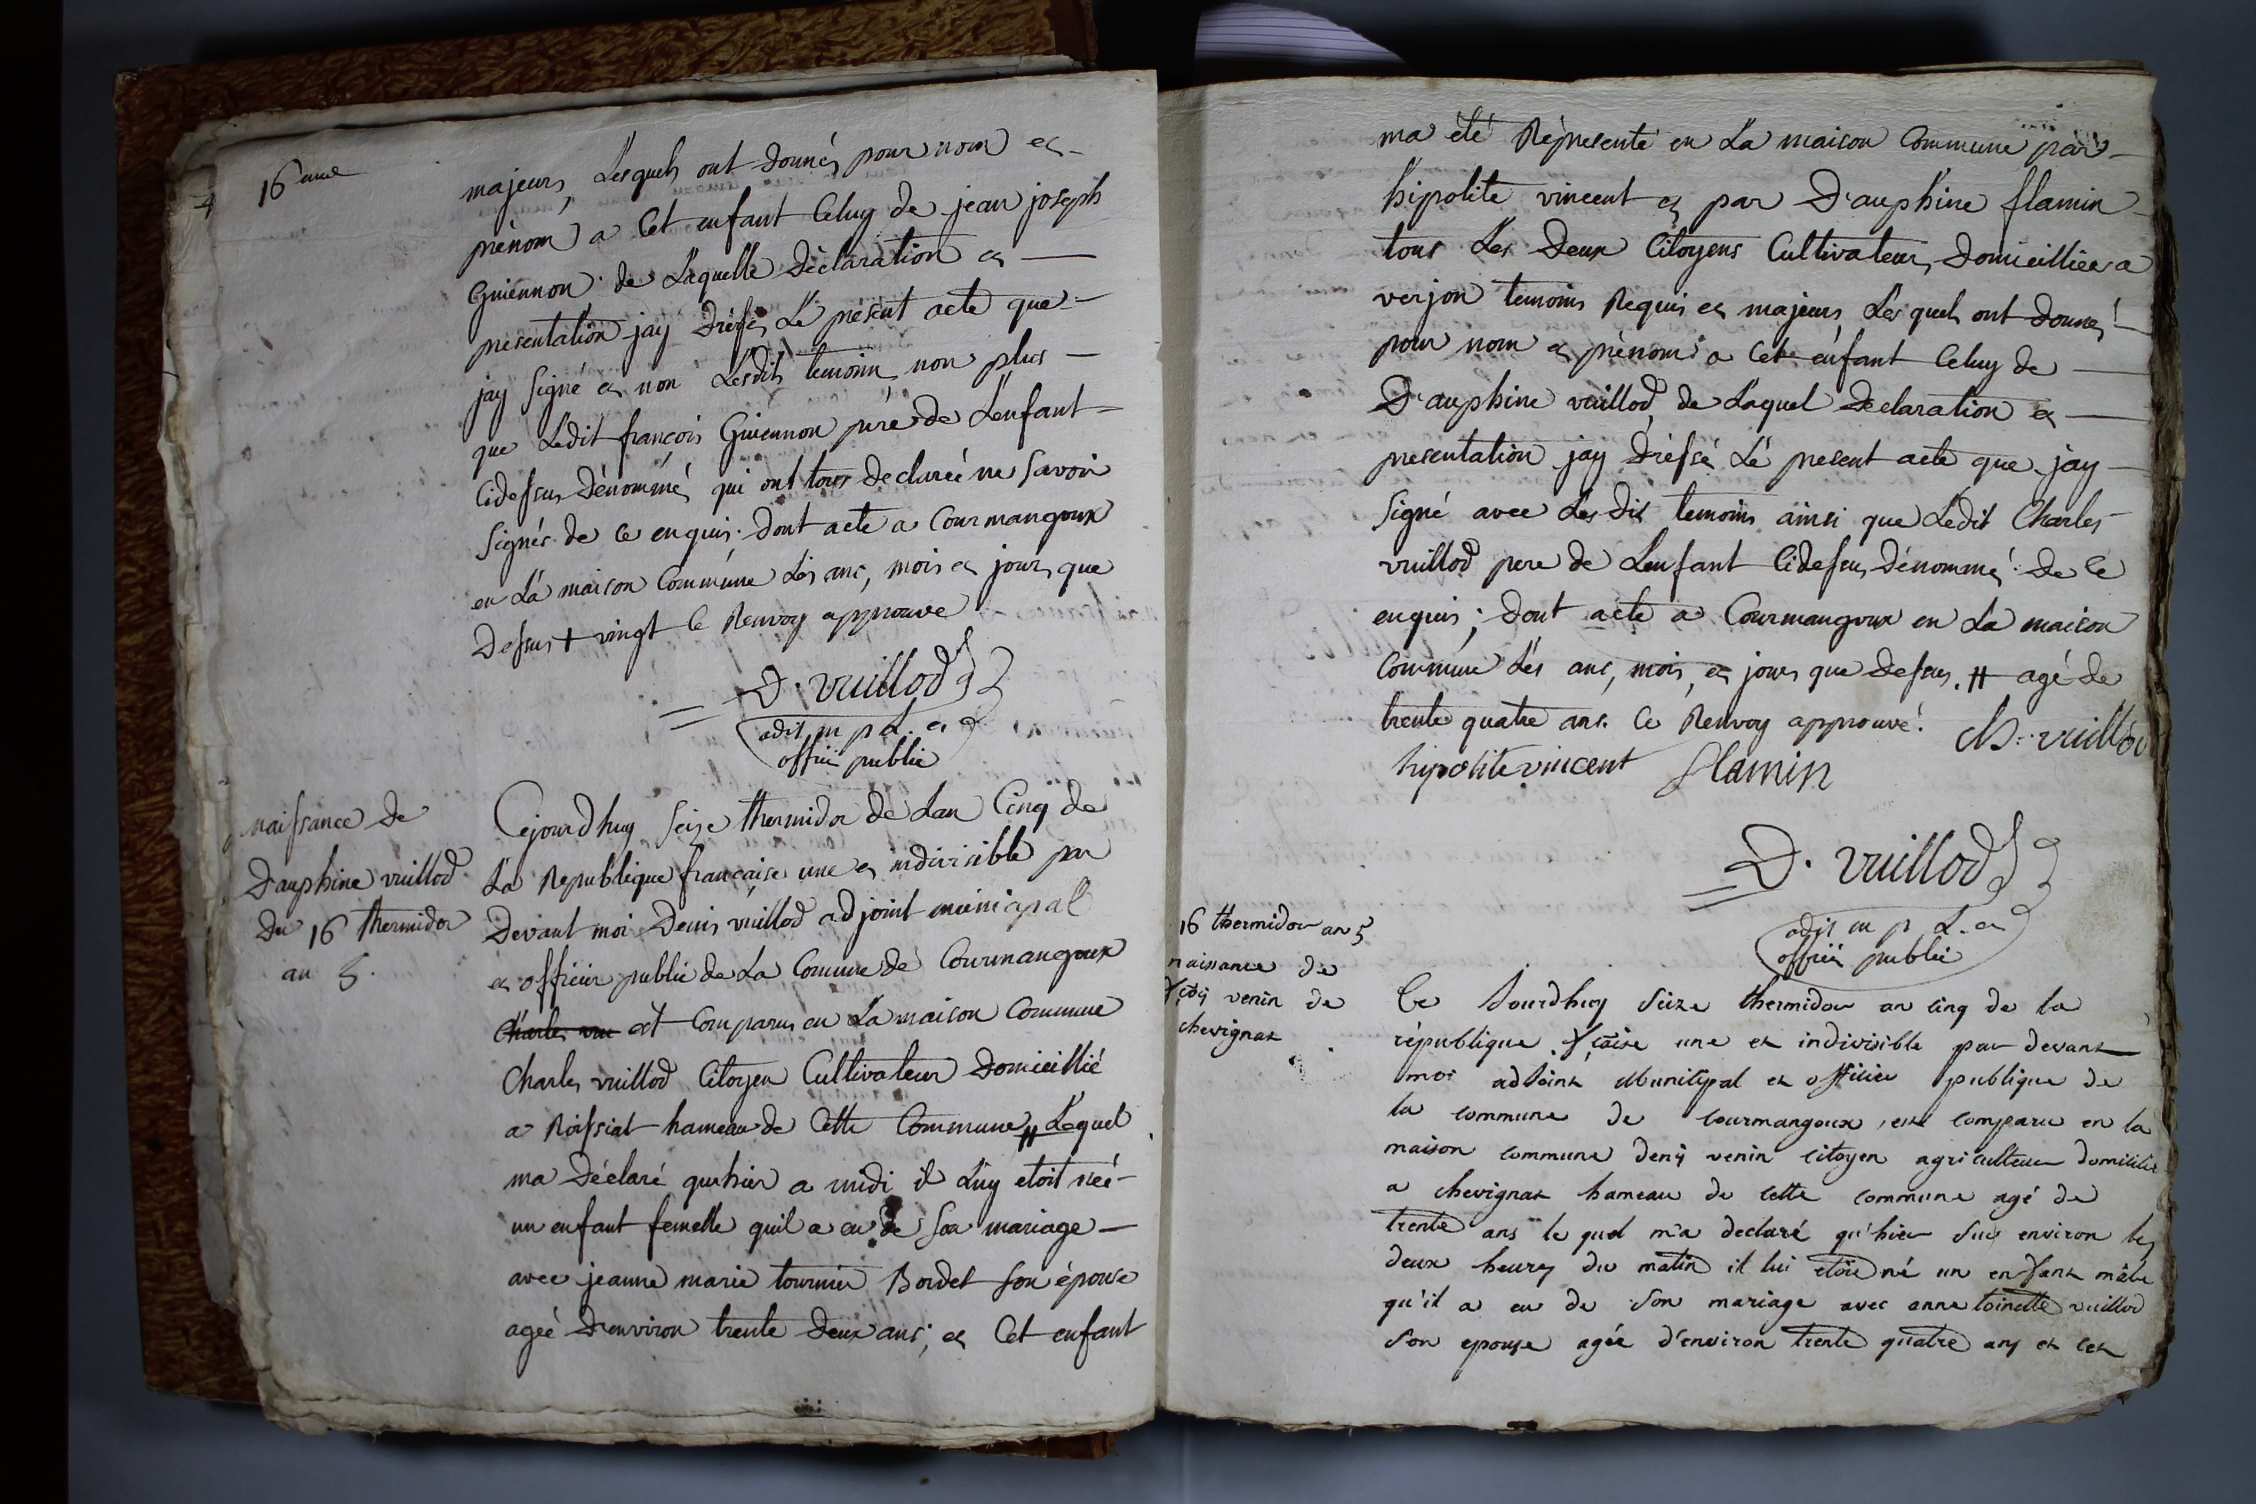 16 eme
majeurs, Lesquels ont donnés pour nom et
prénom a cet enfant Celuy de jean joseph
Guiennon. de Laquelle Déclaration et
presentation jay dressé Le présent acte que
jay signé et non Lesdits temoins non plus
que Ledit françois Guiennon pére de L'enfant
Cidessus Dénommé, qui ont tous declareé ne savoir
signés de ce enquis. dont acte a Courmangoux
en La maison Commune Lés ans, mois et jours que
Dessus + vingt Ce Renvoy approuvé
D. vuillod
adjt m p L. et
offiir public
naissance de
Dauphine vuillod
Du 16 thermidor
an 5.
Cejourdhuy seize thermidor de Lan Cinq de
La Republique française une et indivisible par
Devant moi Denis vuillod adjoint municipal
et officier public de La Comune de Courmangoux
Charles vui est Comparus en La maison Commune
Charles vuillod Citoyen Cultivateur Domicillié
a Roissiat hameau de Cette Commune, # Lequel
ma Déclaré qu'hier a midi il Luy etoit néé
un enfant femelle quil a eu de son mariage
avec jeanne marie tournier Bordet son épouse
ageé D'environ trente deux ans; et Cet enfant
ma été Répresenté en La maison Commune par
hipolite vincent et par D'auphine flamin
tous Les Deux Citoyens Cultivateurs, Domicilliées a
verjon temoins Requis et majeurs, Lesquels ont donnés
pour nom et prénom a Cet enfant Celuy de
D'auphine vuillod, de Laquel Declaration et
presentation jay dréssé Lé present acte que jay
signé avec Lesdit temoins ainsi que Ledit Charles
vuillod pere de Lenfant Cidessus Dénommé. De Ce
enquis; dont acte a Courmangoux en La maison
Commune Lés ans, mois, et jours que Dessus. # agé de
trente quatre ans. Ce Renvoy approuvé.
Ch. vuillod
hipolite vincent flamin
D. vuillod
adjt m p L. et
offiir public
16 thermidor an 5
naissance de
venin de
chevignat
Ce Jourdhuy seize thermidor an cinq de la
république fçaise une et indivisible par devant
moi adjoint Municipal et officier publique de
la commune de Courmangoux, est comparu en la
maison commune denis venin citoyen agriculteur domicilié
a chevignat hameau de cette commune agé de
trente ans le quel m'a declaré qu'hier sur environ les
deux heures du matin il lui etoit né un enfant mâle
qu'il a eu de son mariage avec anne toinette vuillod
son epouse agée d'environ trente quatre ans et cet